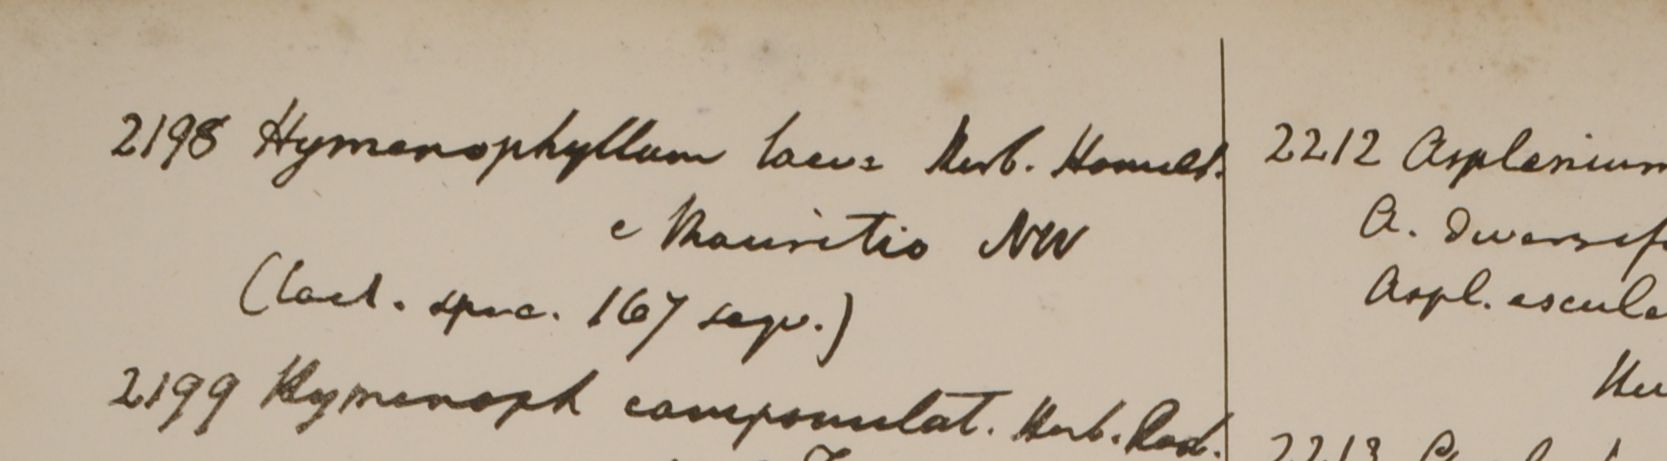 2198 Hymenophyllum laeve Herb. Hamilt.
e Mauritio NW
(Cael. spec. 167 seqv.)
2199 Hymenoph campanulat. Herb. Rad.
2212 Asplenium
A. diversif
Aspl. escule
2213